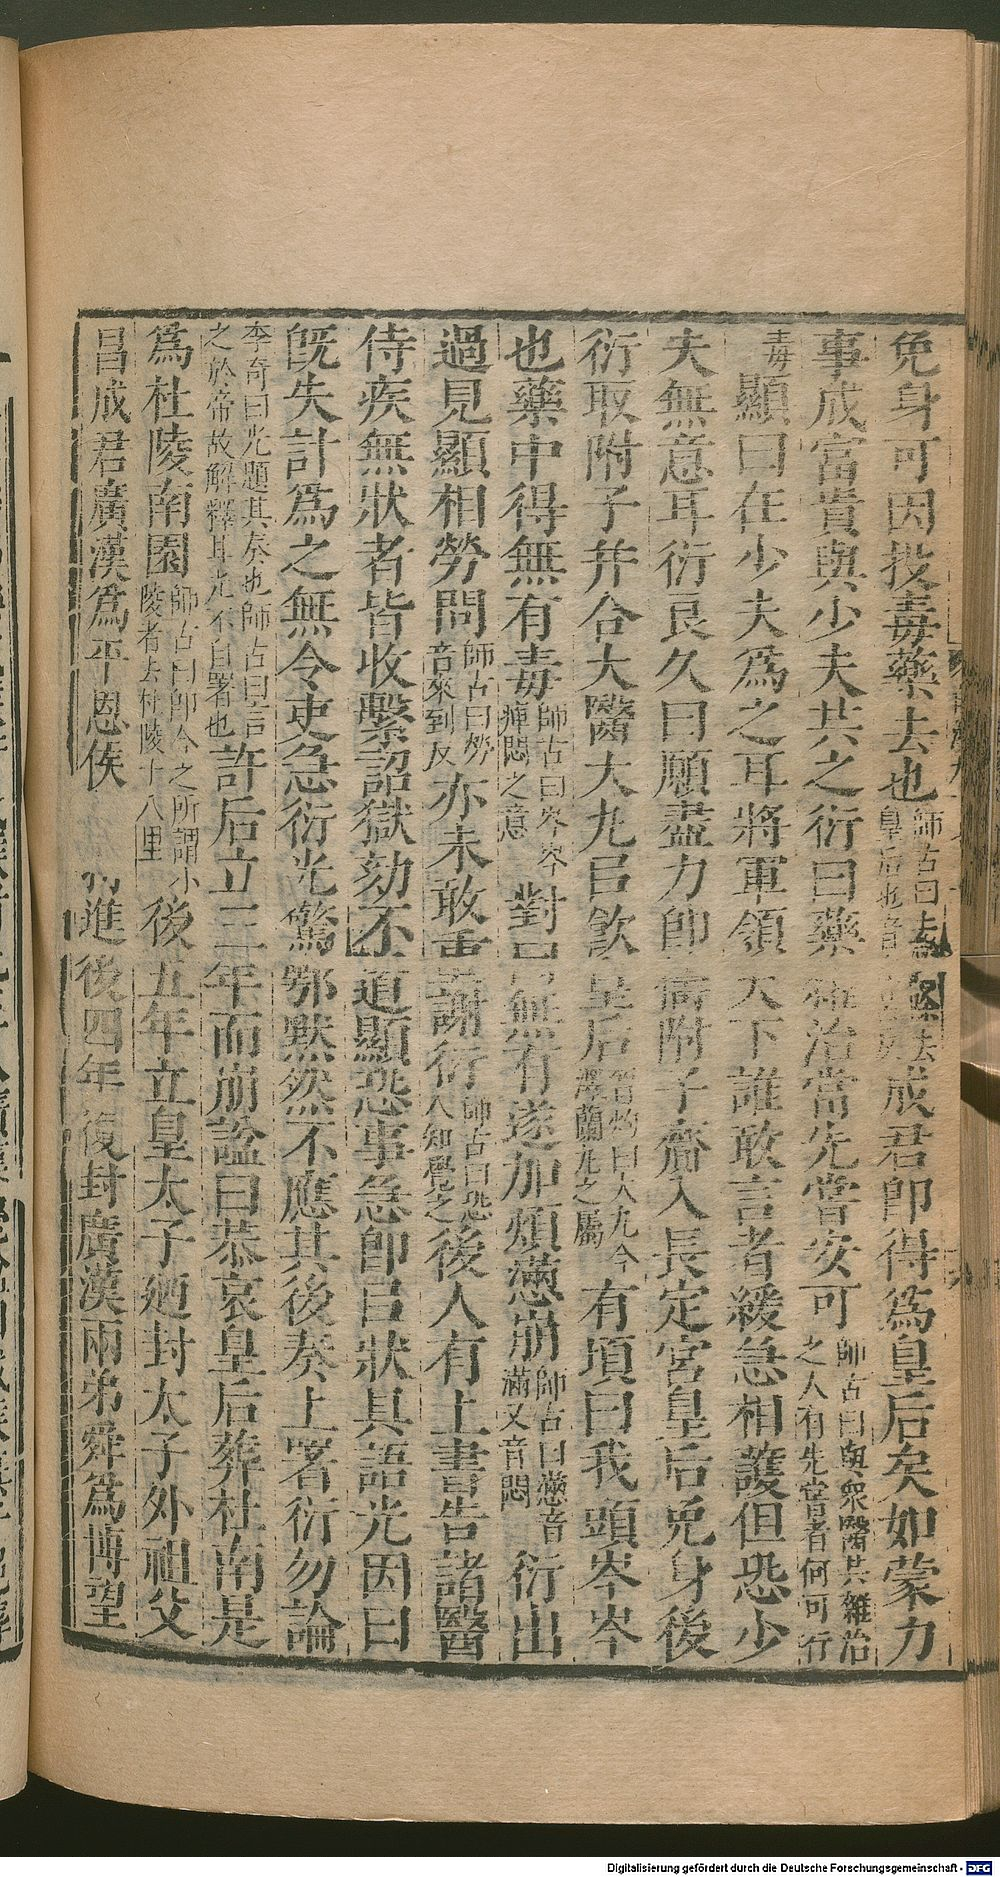 免身可因投毒藥去也師古曰去皇后也成君即得爲皇后矣如蒙力
事成富貴與少夫共之衍曰藥雜治當先嘗安可師古曰與衆醫共雜治之人有先嘗者何可行
毒顯曰在少夫爲之耳將軍領天下誰敢言者緩急相護但恐少
夫無意耳衍良久曰願盡力即擣附子齎入長定宮皇后免身後
衍取附子并合大醫大丸㠯飲皇后晉灼曰大丸今澤蘭丸之屬有頃曰我頭岑岑
也藥中得無有毒師古曰岑岑痺悶之意對曰無有遂加煩懣崩師古曰懣音滿又音悶衍出
過見顯相勞問師古曰勞音來到反亦未敢重謝衍師古曰恐人知覺之後人有上書告諸醫
侍疾無狀者皆收繫詔獄劾不道顯恐事急即㠯狀具語光因曰
旣失計爲之無令吏急衍光驚鄂默然不應其後奏上署衍勿論
李奇曰光題其奏也師古曰言之於帝故解釋耳光不自署也許后立三年而崩諡曰恭哀皇后葬杜南是
爲杜陵南園師古曰即今之所謂小陵者去杜陵十八里後五年立皇太子廼封太子外祖父
昌成君廣漢爲平恩侯 特進後四年復封廣漢兩弟舜爲博望
Digitalisierung gefördert durch die Deutsche Forschungsgemeinschaft - DFG